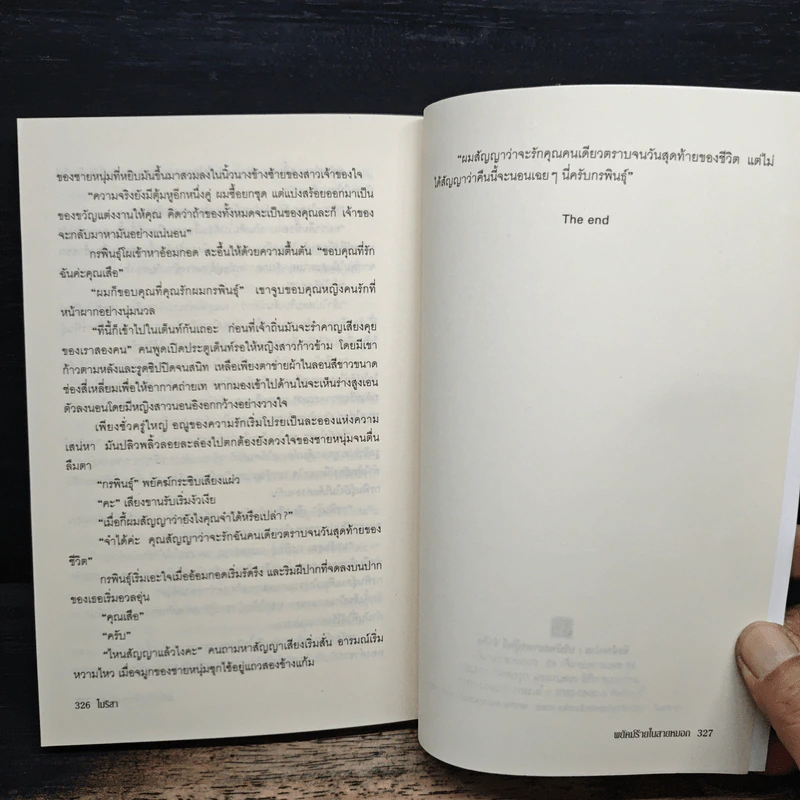 ของชายหนุ่มที่หยิบมันขึ้นมาสวมลงในนิ้วนางข้างซ้ายของสาวเจ้าของใจ
"ความจริงยังมีตุ้มหูอีกหนึ่งคู่ ผมซื้อยกชุด แต่แบ่งสร้อยออกมาเป็น
ของขวัญแต่งงานให้คุณ คิดว่าถ้าของทั้งหมดจะเป็นของคุณละก็ เจ้าของ
จะกลับมาหามันอย่างแน่นอน"
กรพินธุ์โผเข้าหาอ้อมกอด สะอื้นไห้ด้วยความตื้นตัน "ขอบคุณที่รัก
ฉันค่ะคุณเสือ"
"ผมก็ขอบคุณที่คุณรักผมกรพินธุ์" เขาจูบขอบคุณหญิงคนรักที่
หน้าผากอย่างนุ่มนวล
"ทีนี้ก็เข้าไปในเต็นท์กันเถอะ ก่อนที่เจ้าถิ่นมันจะรำคาญเสียงคุย
ของเราสองคน" คนพูดเปิดประตูเต็นท์รอให้หญิงสาวก้าวข้าม โดยมีเขา
ก้าวตามหลังและรูดซิปปิดจนสนิท เหลือเพียงตาข่ายผ้าไนลอนสีขาวขนาด
ช่องสี่เหลี่ยมเพื่อให้อากาศถ่ายเท หากมองเข้าไปด้านในจะเห็นร่างสูงเอน
ตัวลงนอนโดยมีหญิงสาวนอนอิงอกกว้างอย่างวางใจ
เพียงชั่วครู่ใหญ่ อณูของความรักเริ่มโปรยเป็นละอองแห่งความ
เสน่หา มันปลิวพลิ้วลอยละล่องไปตกต้องยังดวงใจของชายหนุ่มจนตื่น
ลืมตา
"กรพินธุ์" พยัคฆ์กระซิบเสียงแผ่ว
"คะ" เสียงขานรับเริ่มงัวเงีย
"เมื่อกี้ผมสัญญาว่ายังไงคุณจำได้หรือเปล่า?"
"จำได้ค่ะ คุณสัญญาว่าจะรักฉันคนเดียวตราบจนวันสุดท้ายของ
ชีวิต"
กรพินธุ์เริ่มเอะใจเมื่ออ้อมกอดเริ่มรัดรึง และริมฝีปากที่จดลงบนปาก
ของเธอเริ่มอวลอุ่น
"คุณเสือ"
"ครับ"
"ไหนสัญญาแล้วไงคะ" คนถามหาสัญญาเสียงเริ่มสั่น อารมณ์เริ่ม
หวามไหว เมื่อจมูกของชายหนุ่มซุกไซ้อยู่แถวสองข้างแก้ม
326 โมริสา
"ผมสัญญาว่าจะรักคุณคนเดียวตราบจนวันสุดท้ายของชีวิต แต่ไม่
ได้สัญญาว่าคืนนี้จะนอนเฉยๆ นี่ครับกรพินธุ์"
The end
พยัคฆ์ร้ายในสายหมอก 327